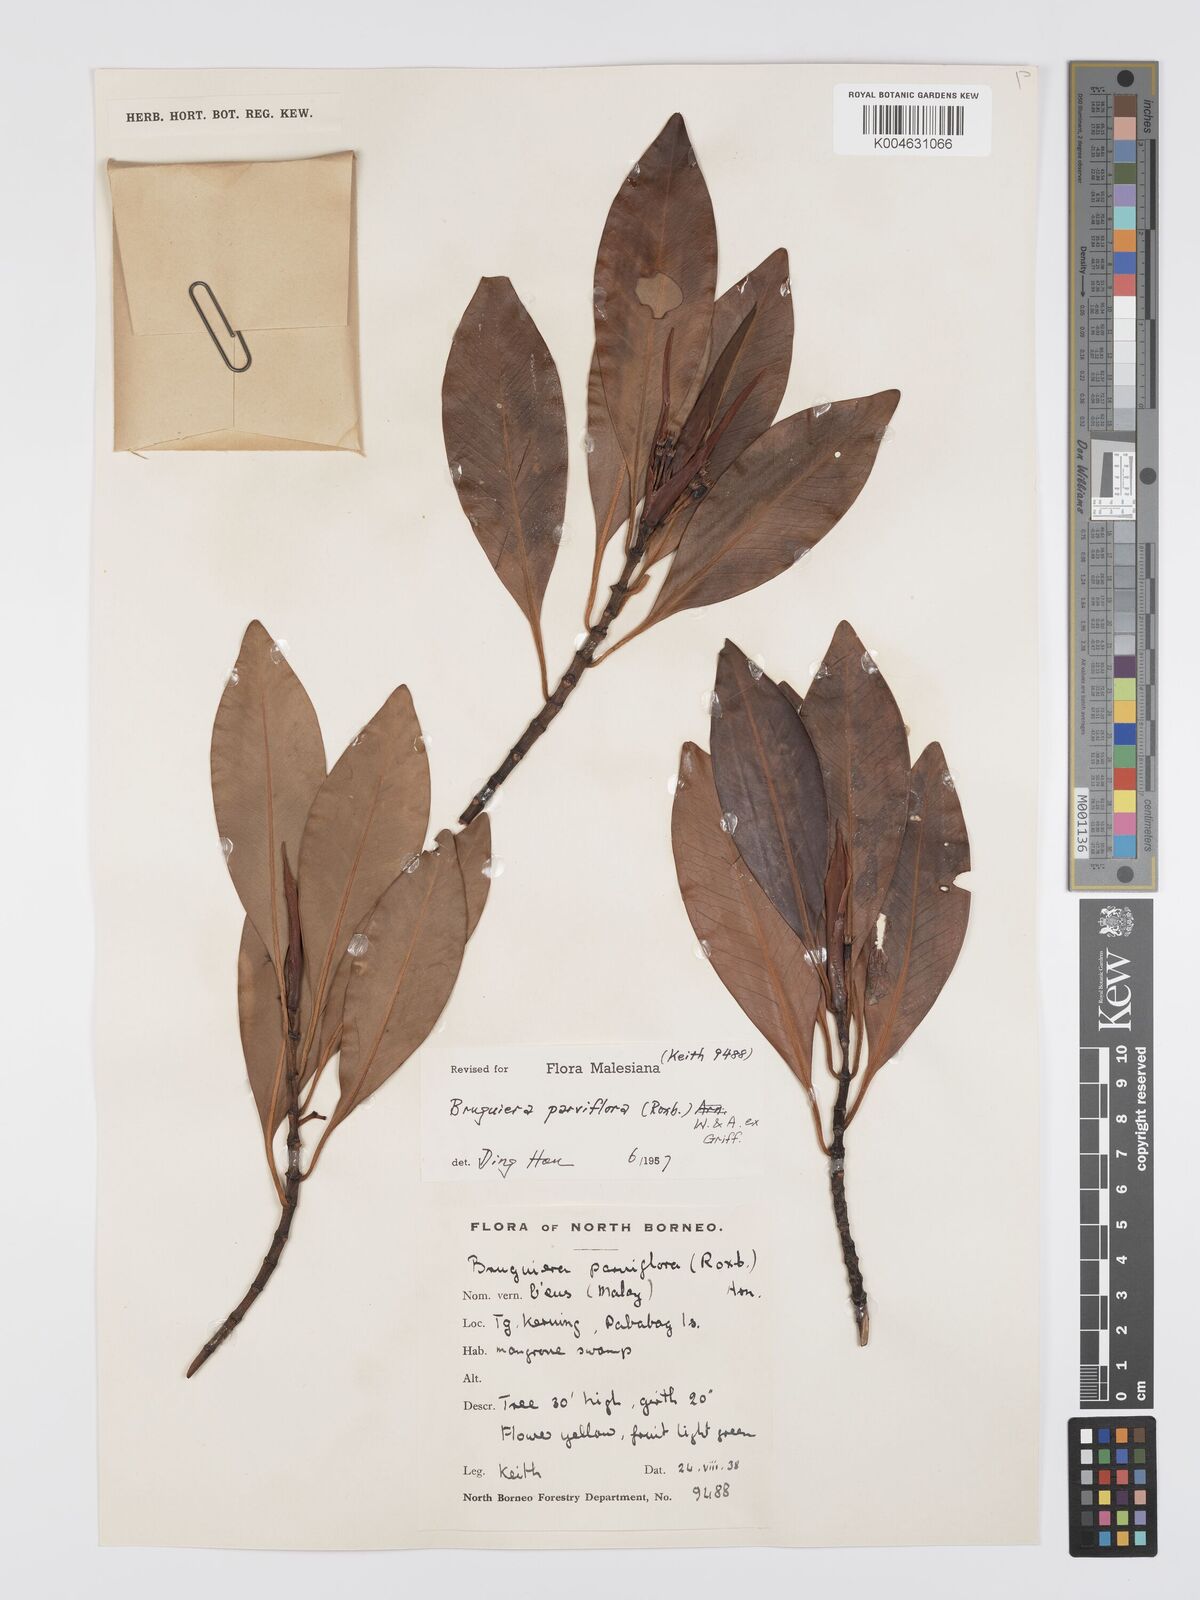 HERB. HORT. BOT. REG. KEW.
ROYAL BOTANIC GARDENS KEW
K004631066
(Keith 9488)
Revised for Flora Malesiana
Bruguiera parviflora (Roxb.) Arn.
W. & A. ex
Griff.
det. Ding Hou 6/1957
FLORA OF NORTH BORNEO.
Bruguiera parviflora (Roxb.)
Arn.
Nom. vern. (Malay)
Loc. Tg. Keruing, Pababag Is.
Hab. mangrove swamp
Alt.
Descr. Tree 30' high, girth 20"
Flower yellow, fruit light green
Leg. Keith Dat. 24.viii.38
North Borneo Forestry Department, No. 9488
inches
centimeters
Density
Don Williams
M001136
Royal Botanic Gardens
Kew
copyright reserved
0 1 2 3 4 5 6 7 8 9 10
cm